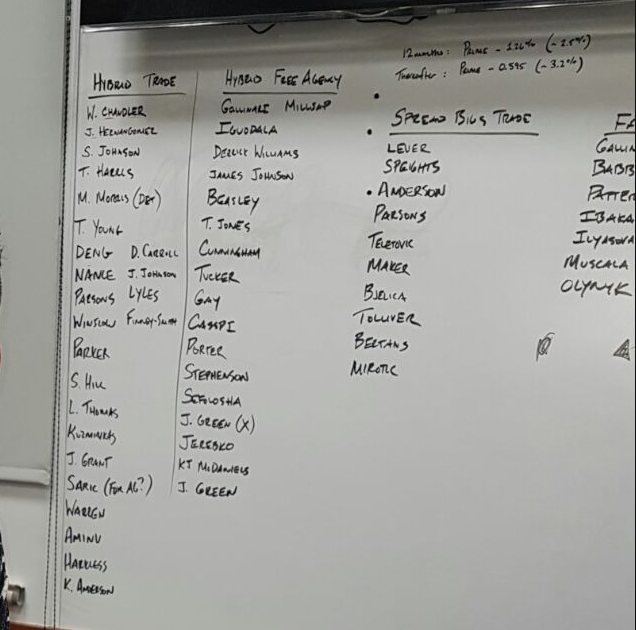 12 months: PRIME - 1.26% (- 2.5%)
Thereafter: PRIME - 0.595 (- 3.2%)
HYBRID TRADE
W. CHANDLER
J. HERNANGOMEZ
S. JOHNSON
T. HARRIS
M. MORRIS (DET)
T. YOUNG
DENG D. CARROLL
NANCE J. JOHNSON
PARSONS LYLES
WINSLOW FINNEY-SMITH
PARKER
S. HILL
L. THOMAS
KUZMINSKAS
J. GRANT
SARIC (FOR AG?)
WARREN
AMINU
HARKLESS
K. ANDERSON
HYBRID FREE AGENCY
GALLINARI MILLSAP
IGUODALA
DERRICK WILLIAMS
JAMES JOHNSON
BEASLEY
T. JONES
CUNNINGHAM
TUCKER
GAY
CASSPI
PORTER
STEPHENSON
SEFOLOSHA
J. GREEN (X)
JEREBKO
KJ MCDANIELS
J. GREEN
SPREAD BIGS TRADE
LEUER
SPEIGHTS
• ANDERSON
PARSONS
TELETOVIC
MAKER
BJELICA
TOLLIVER
BERTANS
MIROTIC
FA
GALLIN
BABB
PATTER
IBAKA
ILYASOVA
MUSCALA
OLYNYK